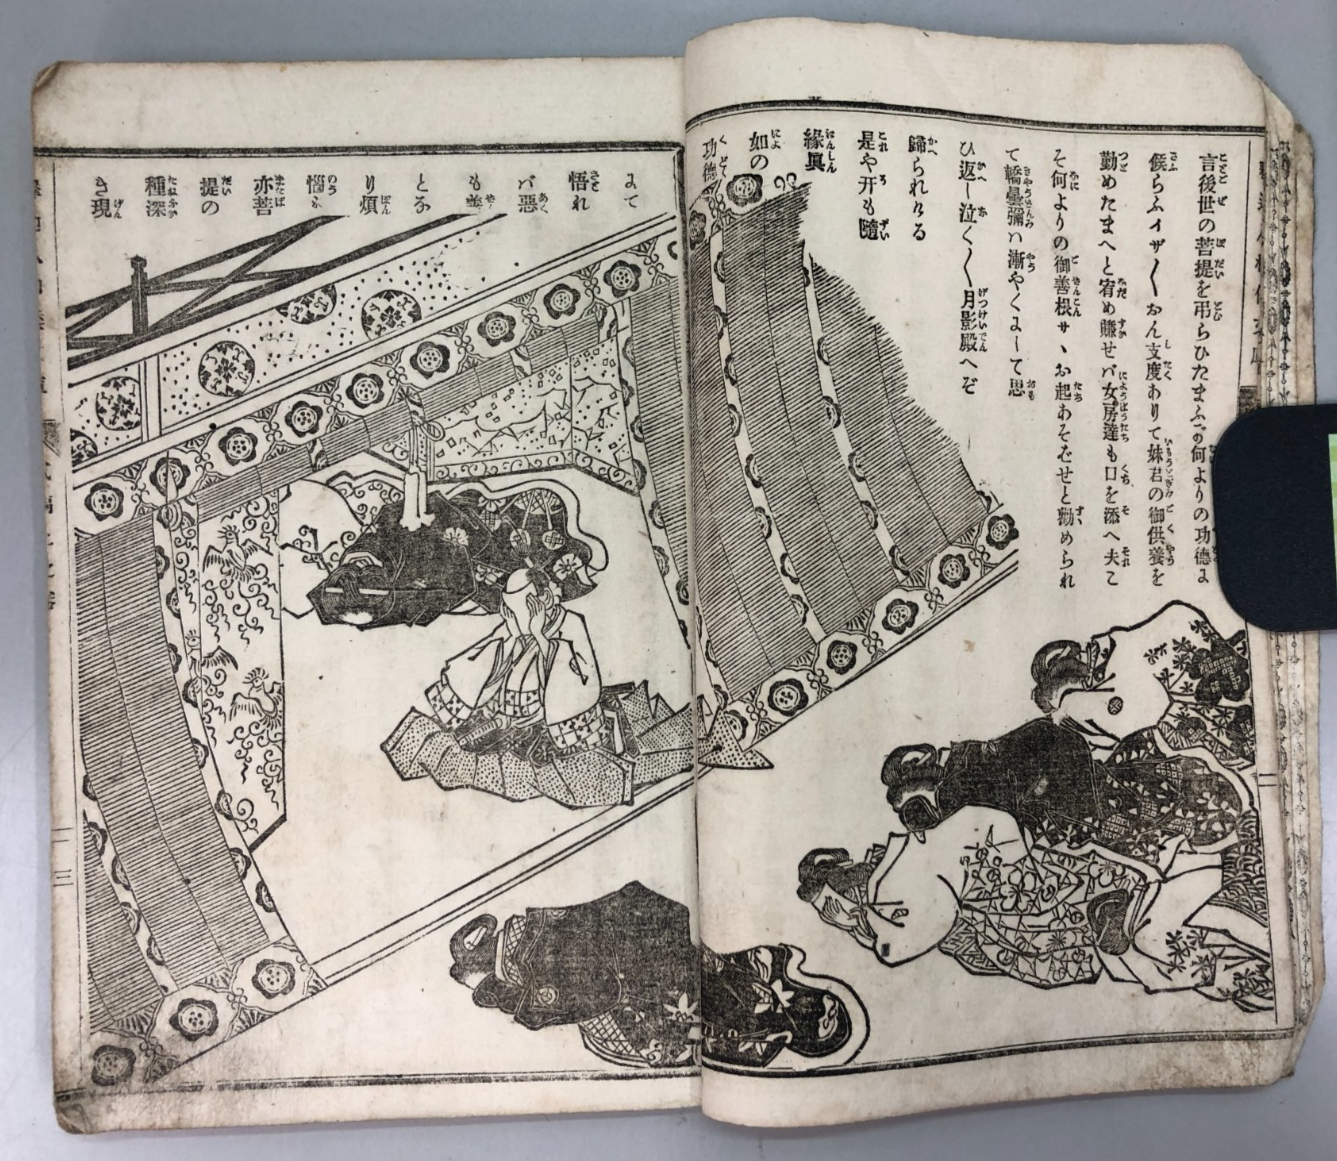 言後世の菩提を弔らひたまふガ何よりの功徳よ
候らふイザ〳〵おん支度ありて妹君の御供養を
勤めたまへと宥め賺せバ女房達も口を添へ夫こ
そ何よりの御善根サヽお起あそバせと勸められ
て轎曇彌ハ漸やくよして思
ひ返し泣く〳〵月影殿へぞ
歸られける
是や开も隨
緣眞
如の
功德
よて
悟れ
バ惡
も善
とな
り煩
惱も
亦菩
提の
種深
き現